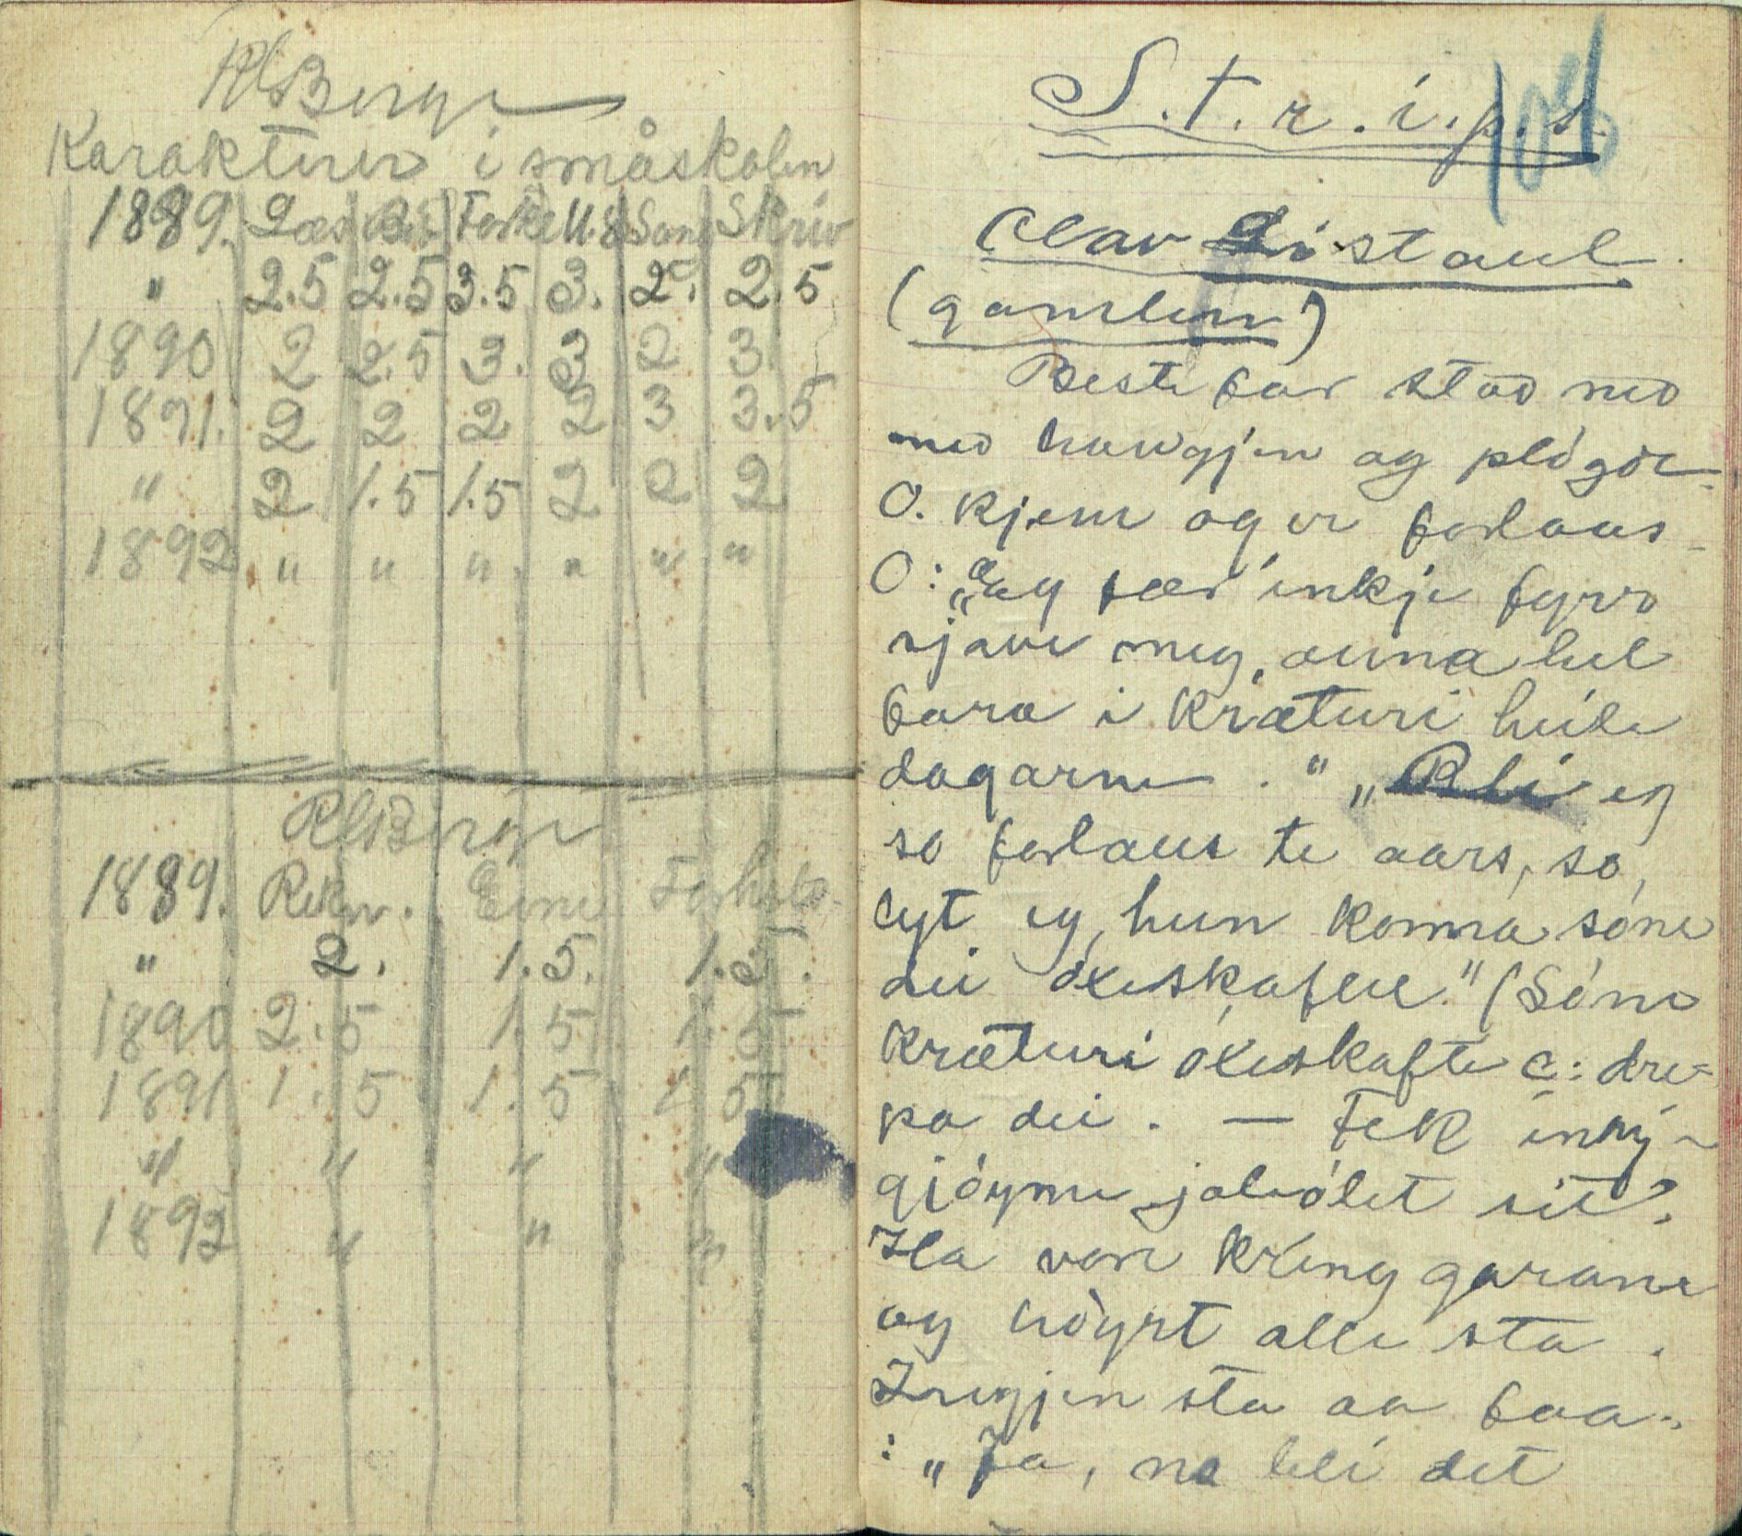 RBerge
Karakterer i småskolen
1889. Læs Bib. Forkl U.S. Sang Skriv
" 2.5 2.5 3.5 3. 2. 2.5
1890 2 2.5 3. 3 2 3
1891. 2 2 2 2 3 3.5
" 2 1.5 1.5 2 2 2
1892 " " " " " "
RBerge
1889. Rekn. Evne Forhold
" 2. 1.5. 1.5.
1890 2.5 1.5 1.5
1891 1.5 1.5 1.5
" " " "
1892 " " "
S.t.r.i.p.s.
106
Olav Listaul
(gamlem)
Bestefar stod med
med haugjen og plógde
O. kjem og er forlaus
O: „Eg fær inkje fyro
sjave meg, anna hel
fara i kræturi heile
dagarne." „Bli eg
so forlaus te aars, so,
lyt eg, hun komma sóne
dei óxeskafter." (Sóno
kræturi óxeskafte ɔ: dre=
pa dei. — Fek inkj
gjóyme jaleólet sit.
Ha vore kring garane
og höyrt alle sta.
Ingjen sta aa faa.
: „Ja, no bli det